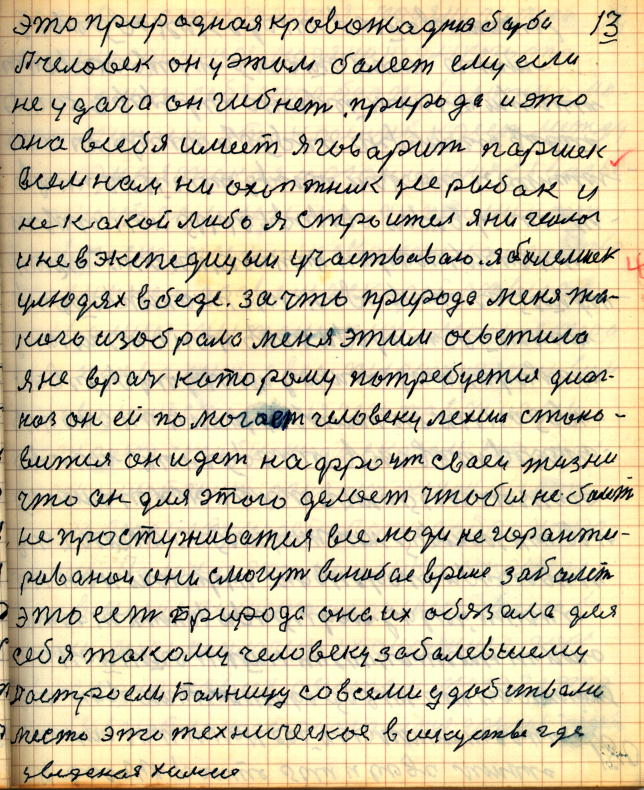 это природная кровожадная барба 13
А человек он у этом балеет ему если
не удача он гибнет. природа и это
она в себя имеет я говарит паршек
всем нам ни охотник не рыбак и
не какой либо я строител я ни геолог
и не в экспедицыи участваваю. я
у людях в беде. за что природа меня та-
кого изобрала меня этим осветила
я не врач которому потребуется диаг-
ноз он ей помогает человеку легше стано-
вится он идет на фронт сваей жизни
что он для этого делает чтобы не балеть
не простуживатся, все люди не горанти-
рованои они смогут в любое време забалеть
это есть природа она их обязала для
себя такому человеку забалевшему
построели Балницу со всеми удобствами
место это техническое в искустве где
введеная химия